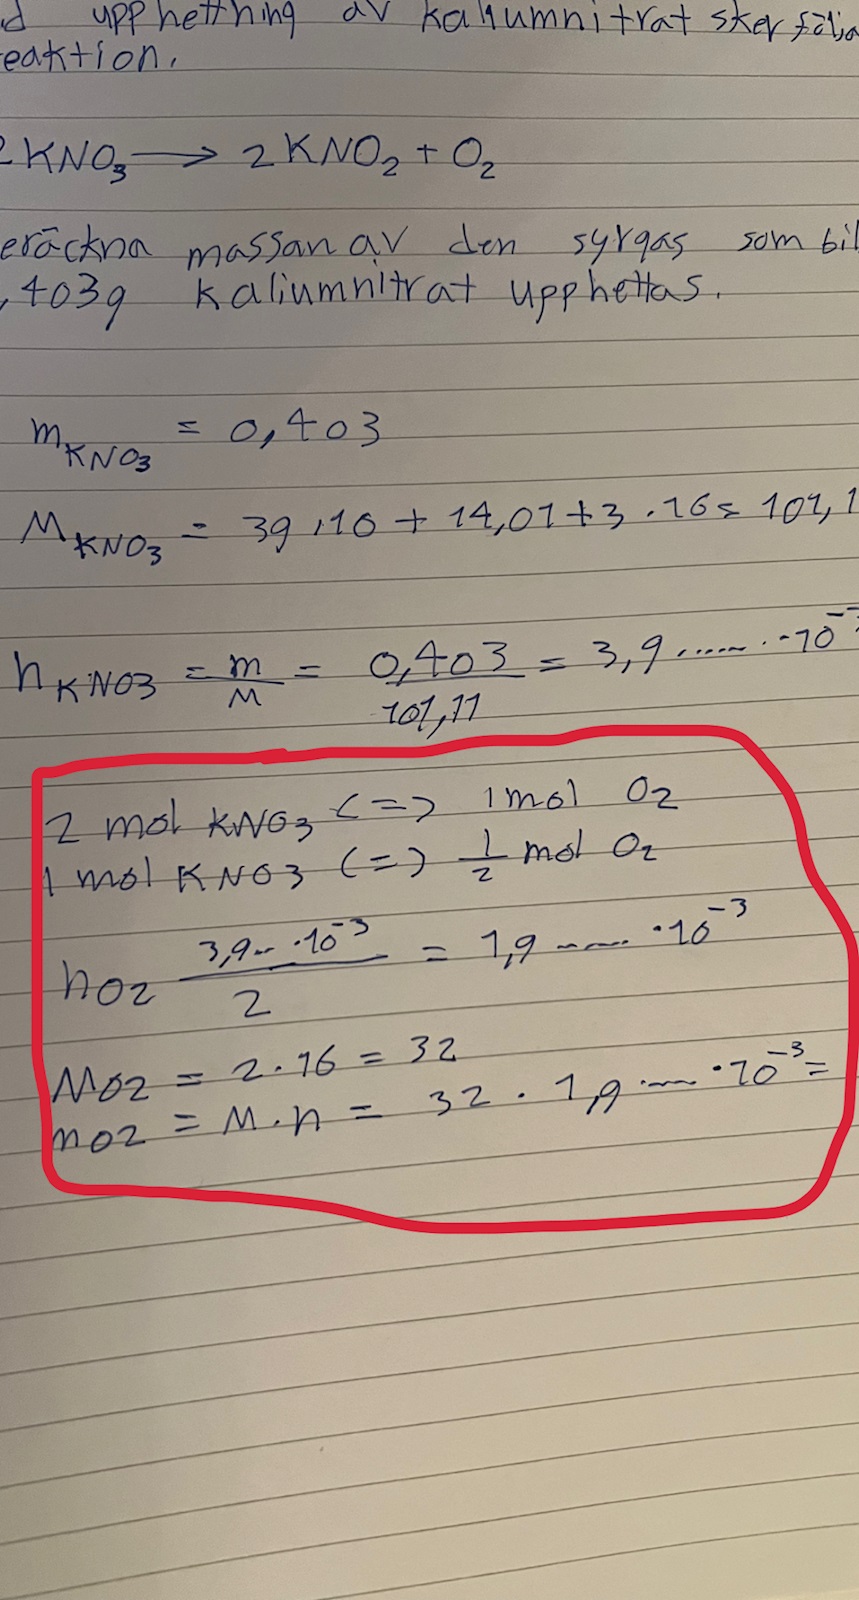 d upphettning av kaliumnitrat sker följa
eaktion.
2KNO₃ → 2KNO₂ + O₂
eräckna massan av den syrgas som bil
,403g kaliumnitrat upphettas.
mKNO₃ = 0,403
MKNO₃ = 39,10 + 14,01 + 3 · 16 = 101,1
nKNO3 = m/M = 0,403/101,11 = 3,9...... · 10⁻³
2 mol KNO₃ <=> 1 mol O₂
1 mol KNO3 <=> 1/2 mol O₂
nO2 3,9... · 10⁻³/2 = 1,9...... · 10⁻³
MO2 = 2 · 16 = 32
mO2 = M · n = 32 · 1,9...... · 10⁻³ =